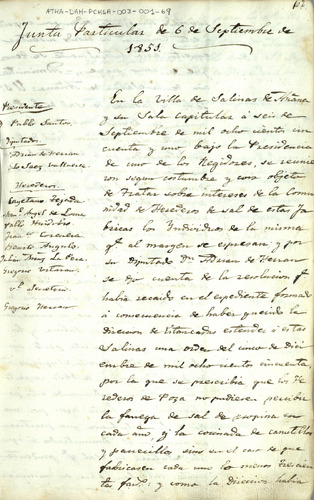 67
ATHA-DAH-PCHSA-003-001-69
Junta Particular de 6 de Septiembre de
1851.
Presidente
Pablo Santos.
Diputados
Adrian de Herran
Herederos.
Cayetano Tejada
Angel de Loma
Pablo
Juan
Benito Angulo.
Julian Diaz La Pera
Gregorio
Vº Secretario
Gregorio Herran
En la Villa de Salinas de Añana
y su Sala capitular á seis de
Septiembre de mil ochocientos cin
cuenta y uno bajo la Presidencia
de uno de los Regidores, se reunie
ron segun costumbre y con objeto
de tratar sobre intereses de la Comu
nidad de Herederos de sal de estas Fa
bricas los Individuos de la misma
qe al margen se espresan y por
su Diputado Dn Adrian de Herran
se dio cuenta de la resolucion qe
habia recaido en el espediente formado
á consecuencia de haber querido la
Direccion de Estancadas estender á estas
Salinas una orden del cinco de Dici
embre de mil ochocientos cincuenta,
por la que se prescribia que los He
rederos de Poza no pudieran percibir
la fanega de sal de propina en
cada año y la cosinada de canutillos
y panecillos sino en el caso de que
fabricasen cada uno lo menos trescien
tas fans.: y como la Direccion habia